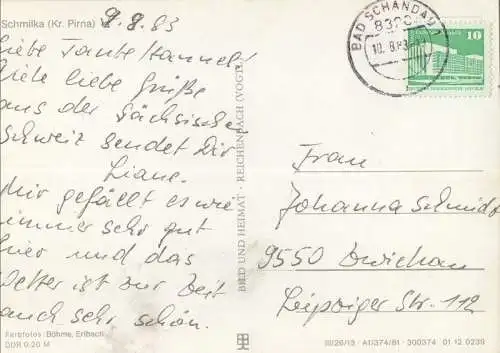 Schmilka (Kr. Pirna)
9.8.83
Liebe Tante Hannel!
Viele liebe Grüße
aus der Sächsischen
Schweiz sendet Dir
Liane.
Mir gefällt es wie
immer sehr gut
hier und das
Wetter ist zur Zeit
auch sehr schön.
Farbfotos: Böhme, Erlbach
DDR 0,20 M
BILD UND HEIMAT · REICHENBACH (VOGTL)
BAD SCHANDAU 1
8320
10. 8.83
10
Frau
Johanna Schmidt
9550 Zwickau
Leipziger Str. 112
III/26/13 · A1/374/81 · 300374 01 12 0239